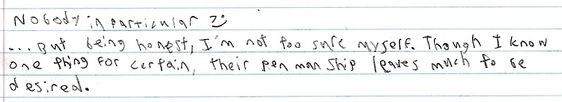 Nobody in particular :)
... But being honest, I'm not too sure myself. Though I know
one thing for certain, their pen man ship leaves much to be
desired.